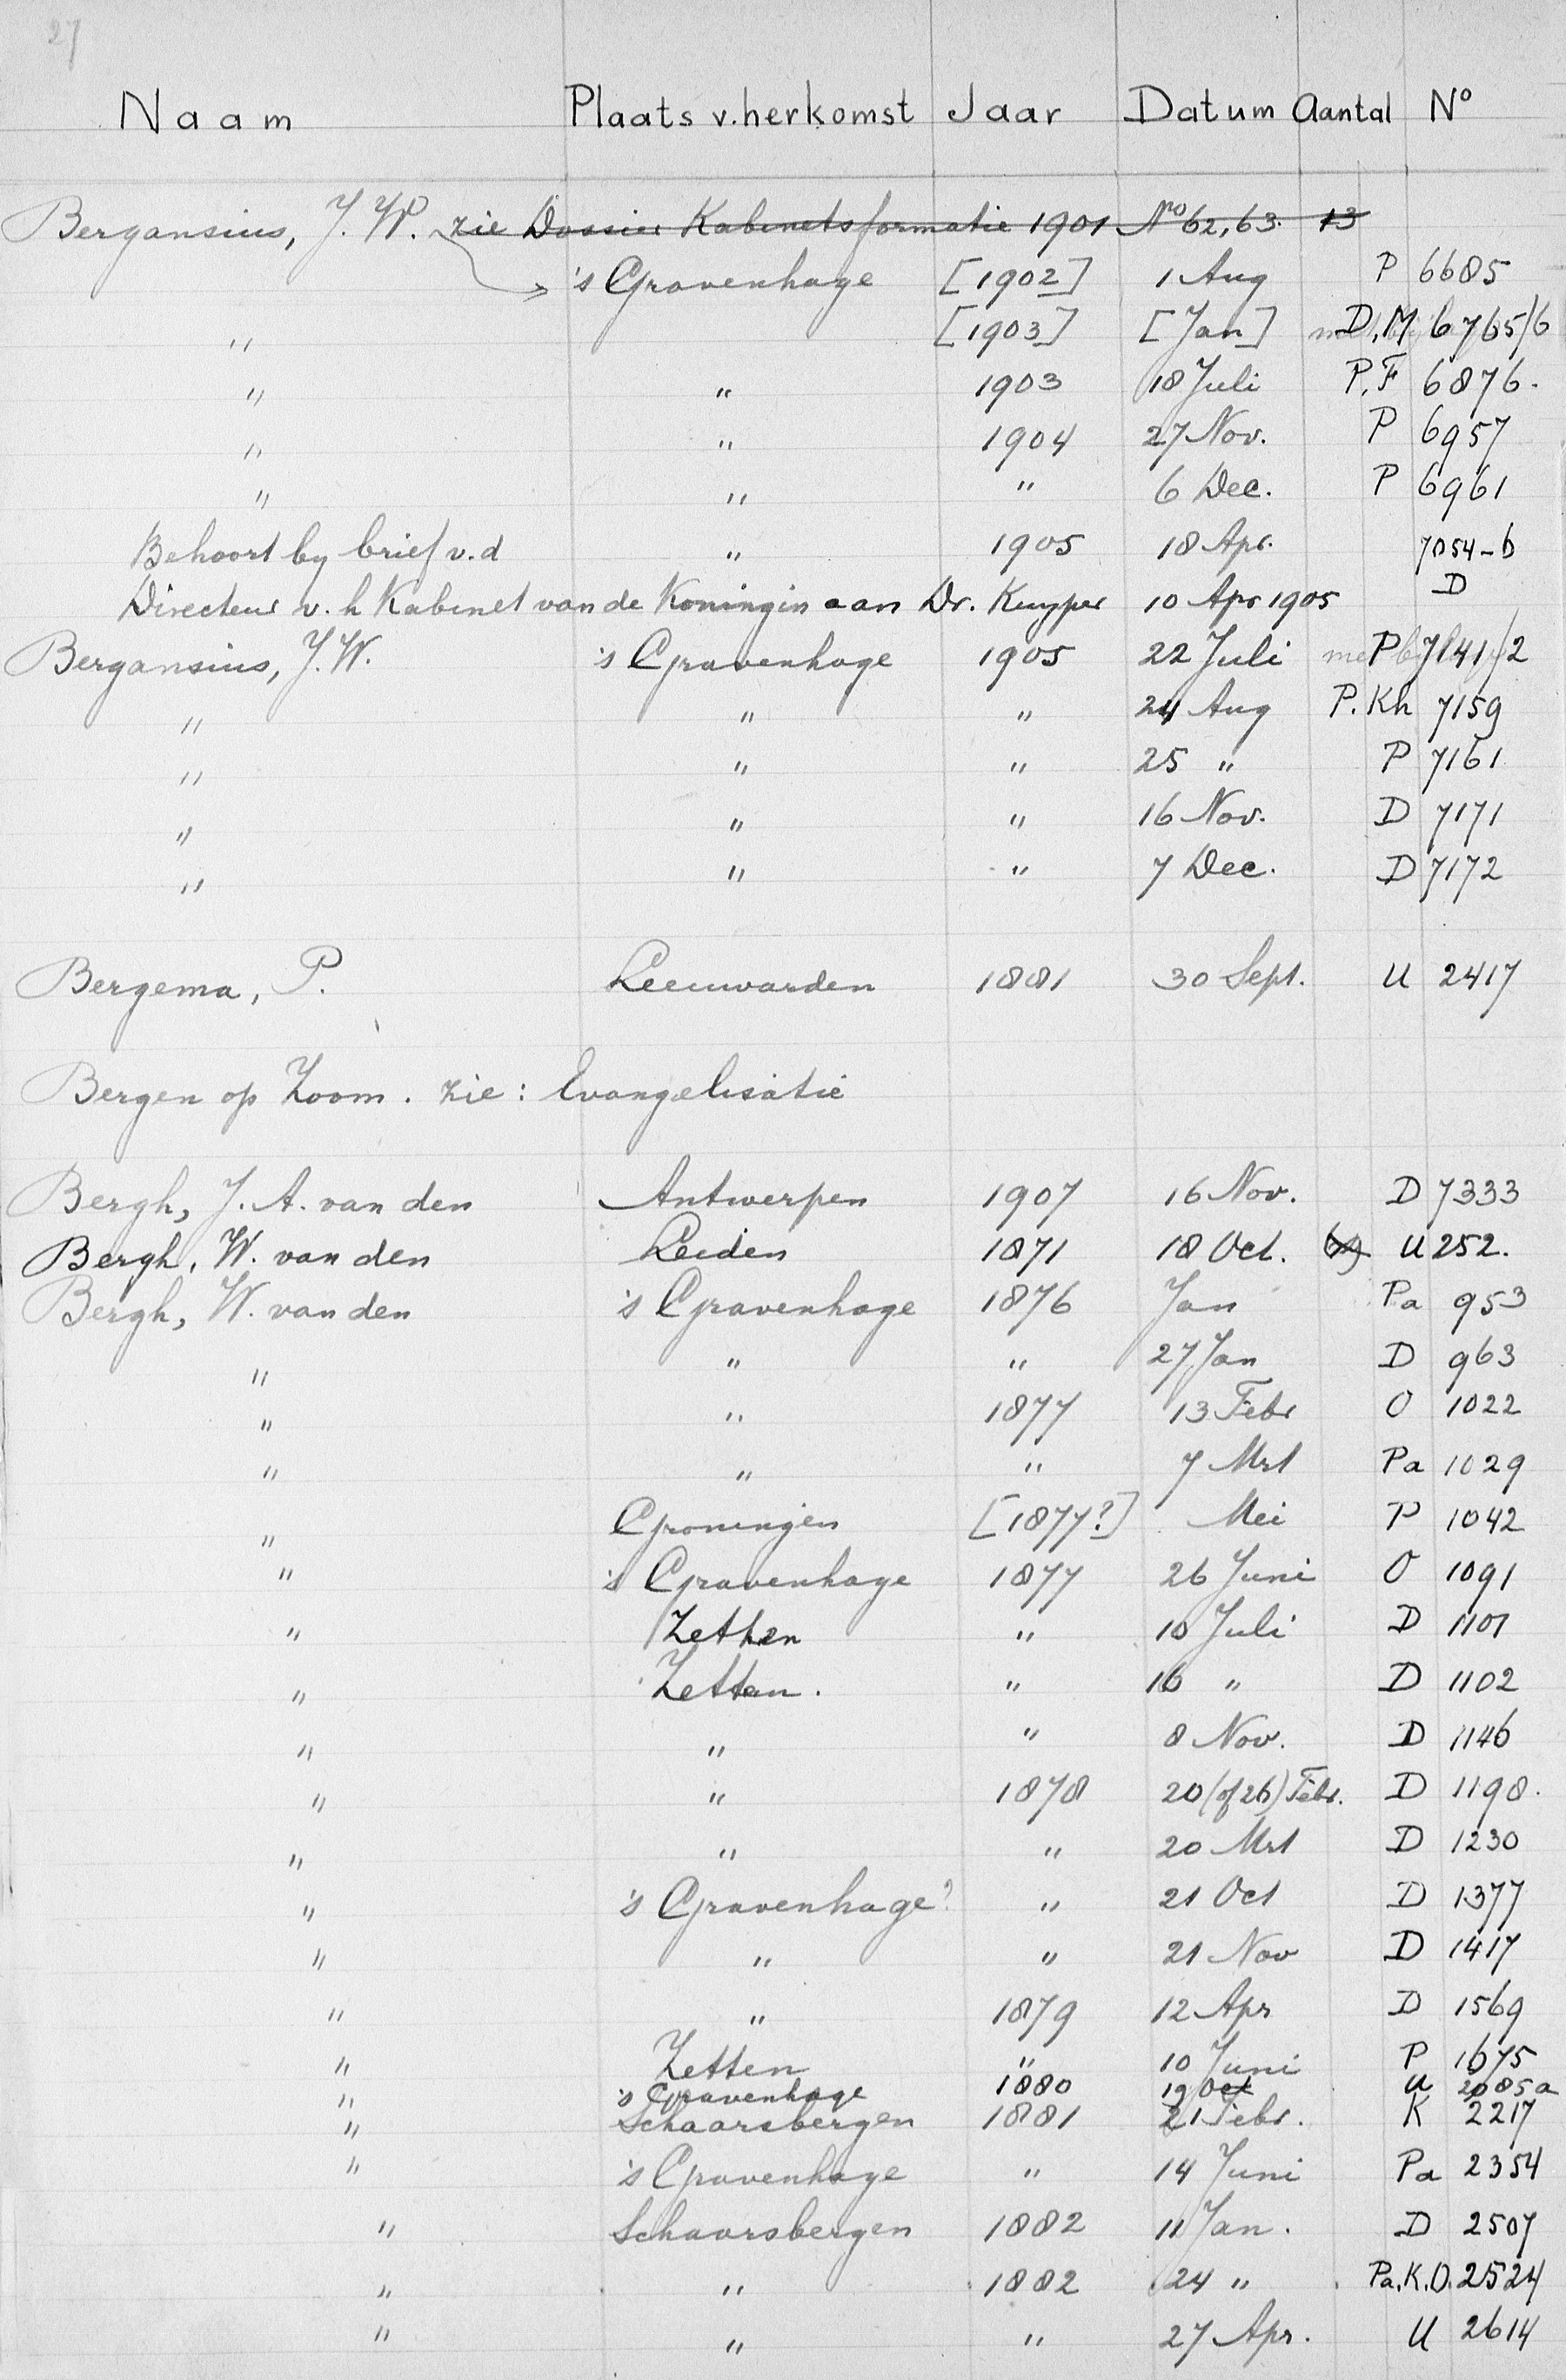 27
Naam Plaats v. herkomst Jaar Datum Aantal No
Bergansius, J. W. zie Dossier Kabinetsformatie 1901 No 62, 63. 13
's Gravenhage [1902] 1 Aug P 6685
" [1903] [Jan] D, M 6765/6
" " 1903 18 Juli P, F 6876.
" " 1904 27 Nov. P 6957
" " " 6 Dec. P 6961
Behoort by brief v. d " 1905 18 Apr. 7054-b
Directeur v. h Kabinet van de Koningin aan Dr. Kuyper 10 Apr 1905 D
Bergansius, J. W. 's Gravenhage 1905 22 Juli P 7141/2
" " " 24 Aug P. Kh 7159
" " " 25 " P 7161
" " " 16 Nov. D 7171
" " " 7 Dec. D 7172
Bergema, P. Leeuwarden 1881 30 Sept. U 2417
Bergen op Zoom. zie: Evangelisatie
Bergh, J. A. van den Antwerpen 1907 16 Nov. D 7333
Bergh, W. van den Leiden 1871 18 Oct. U 252.
Bergh, W. van den 's Gravenhage 1876 Jan Pa 953
" " " 27 Jan D 963
" " 1877 13 Febr O 1022
" " " 7 Mrt Pa 1029
" Groningen [1877?] Mei P 1042
" 's Gravenhage 1877 26 Juni O 1091
" Zetten " 10 Juli D 1101
" Zetten. " 16 " D 1102
" " " 8 Nov. D 1146
" " 1878 20 (of 26) Febr. D 1198.
" " " 20 Mrt D 1230
" 's Gravenhage? " 21 Oct D 1377
" " " 21 Nov D 1417
" " 1879 12 Apr D 1569
" Zetten " 10 Juni P 1675
" 's Gravenhage 1880 19 Oct U 2085a
" Schaarsbergen 1881 21 Febr. K 2217
" 's Gravenhage " 14 Juni Pa 2354
" Schaarsbergen 1882 11 Jan. D 2507
" " 1882 24 " Pa. K. O. 2524
" " " 27 Apr. U 2614